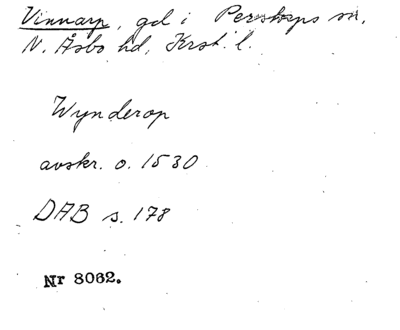 Vinnarp, gd i Perstorps sn,
N. Åsbo hd, Krst. l.
Wynderop
avskr. o. 1530
DAB s. 178
Nr 8062.